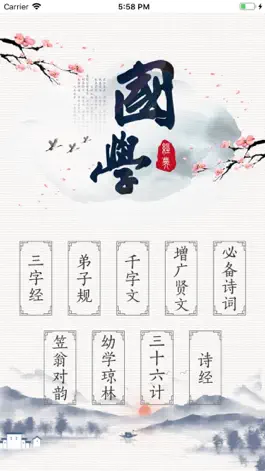 Carrier 5:58 PM
國學
經典
三字经
弟子规
千字文
增广贤文
必备诗词
笠翁对韵
幼学琼林
三十六计
诗经